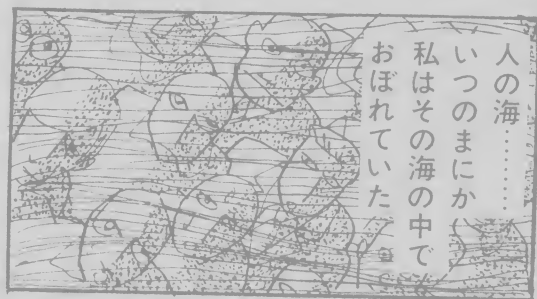 人の海………
いつのまにか
私はその海の中で
おぼれていた